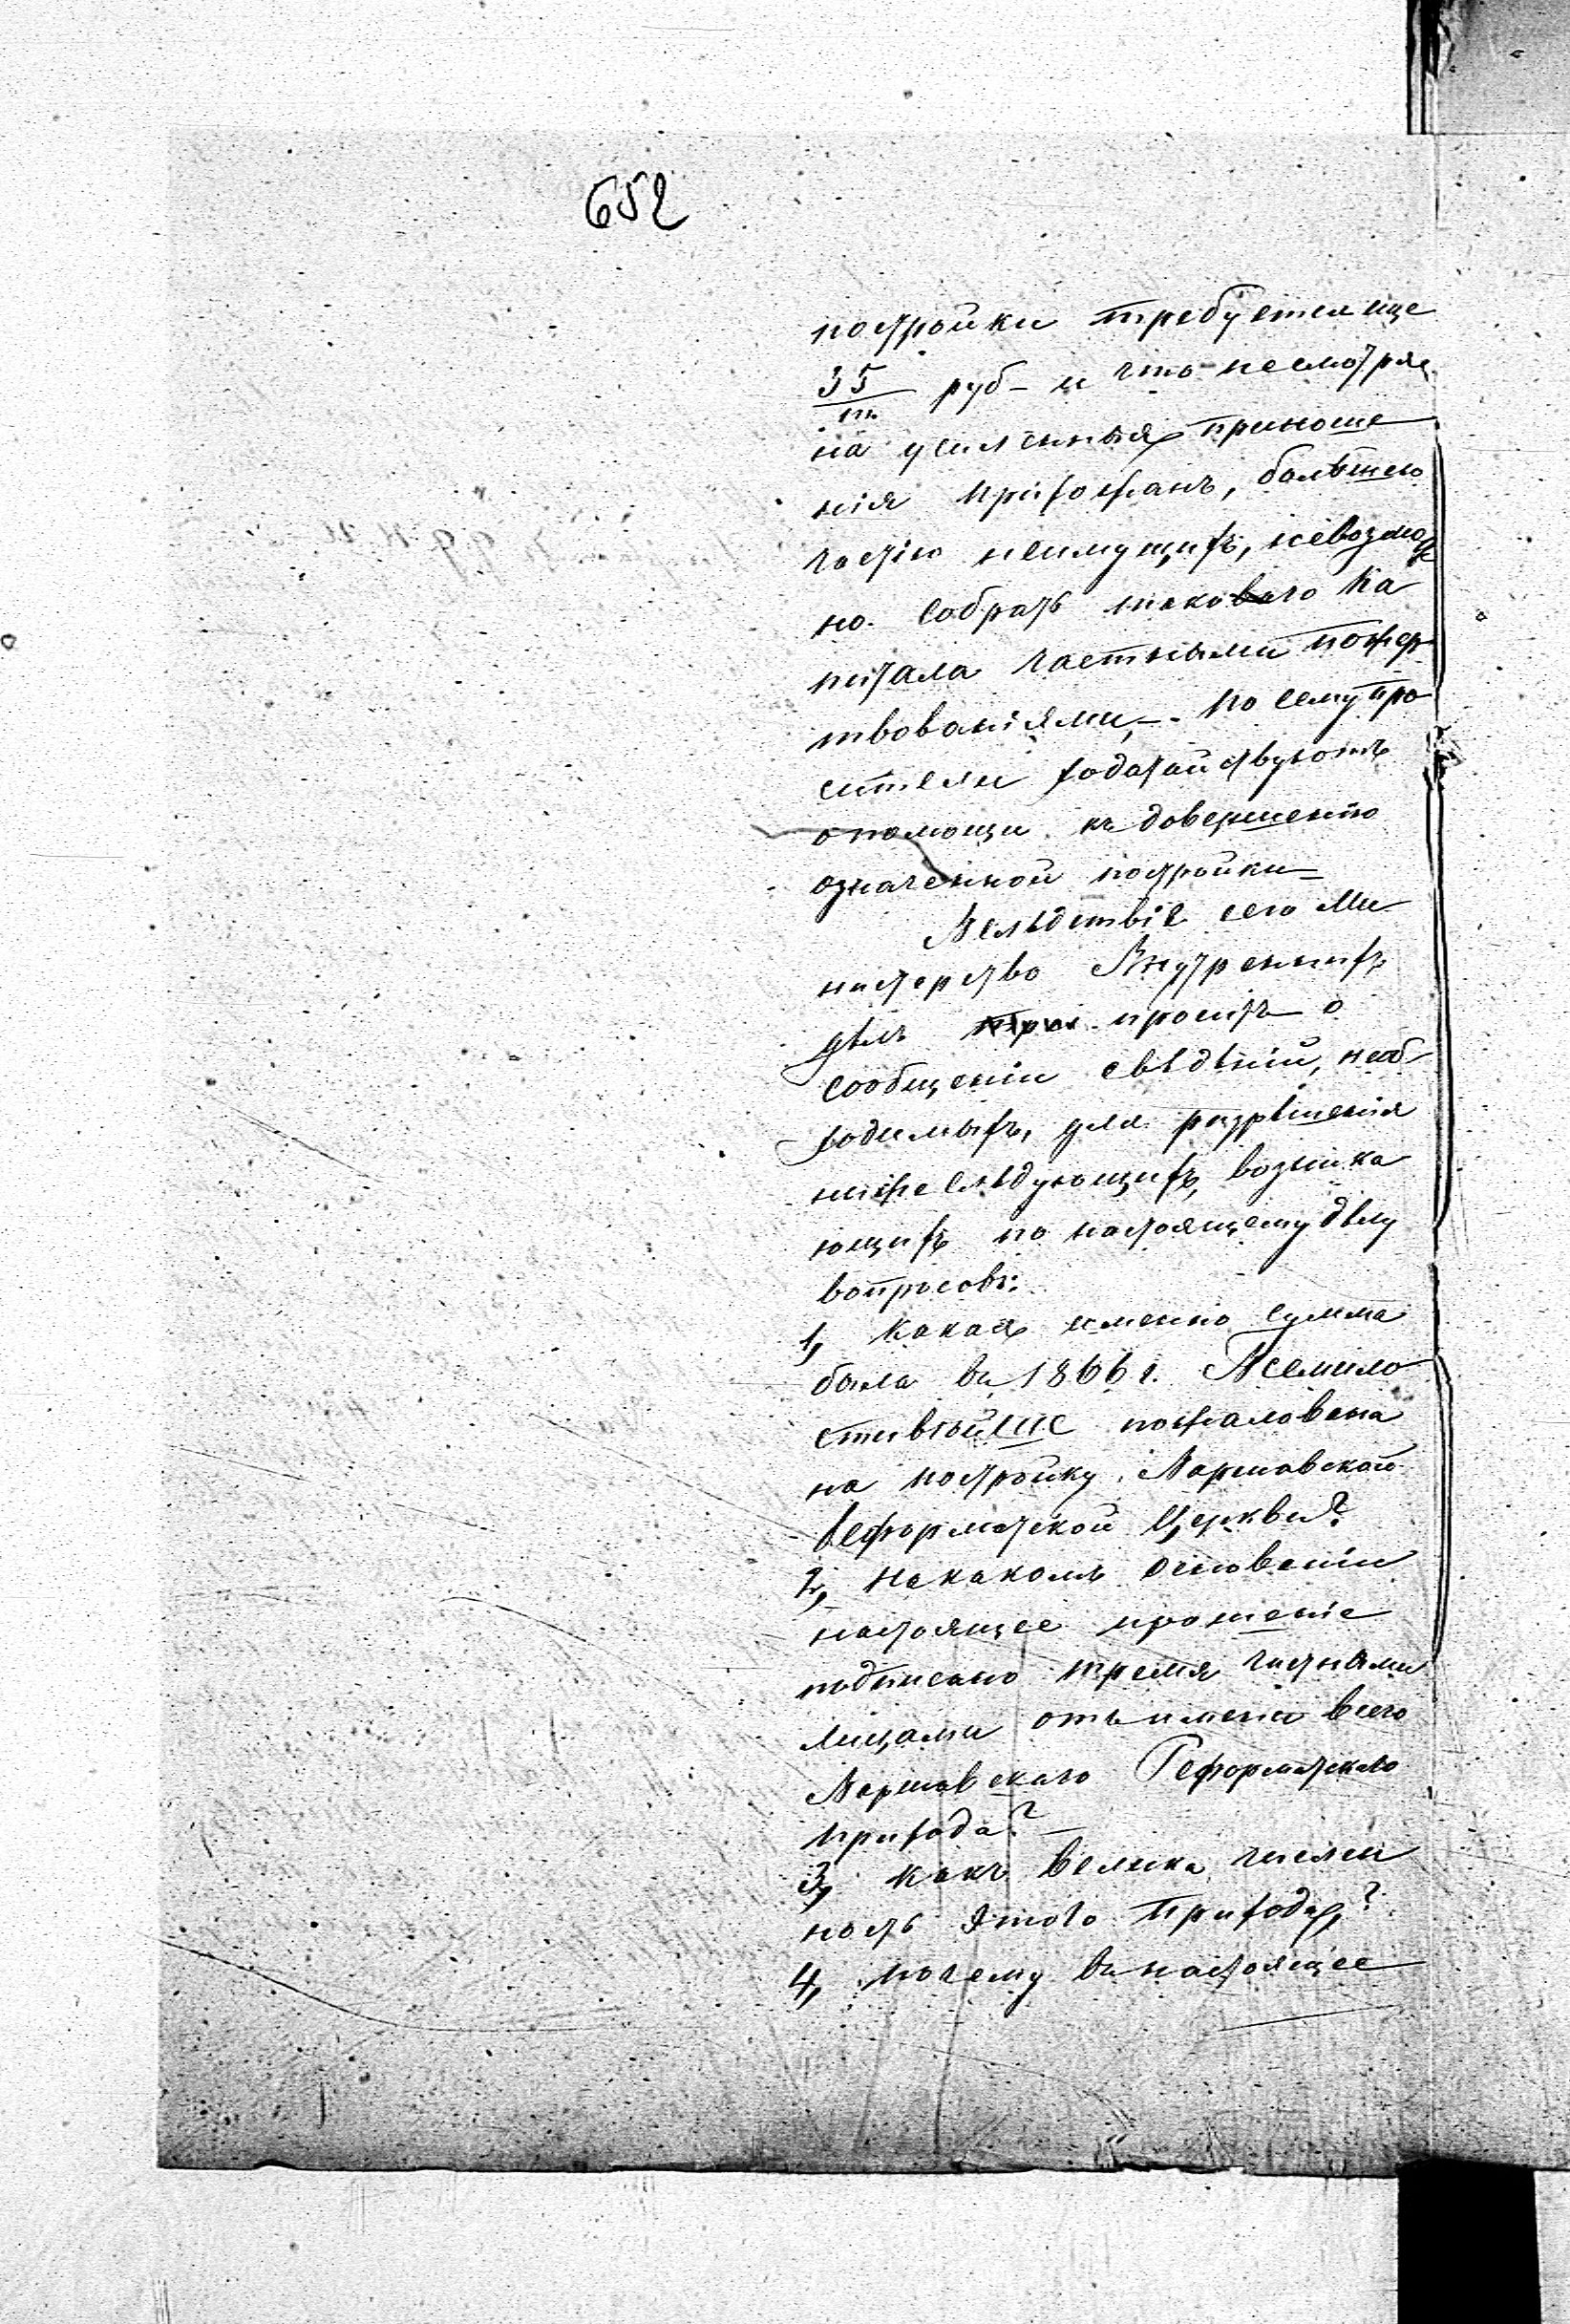 652
постройки требуется еще
35/т. руб – и что несмотря
на усиленныя приноше
нія прихожанъ, большею
частію неимущихъ, невозмож
но собрать таковаго ка
питала частными пожер
твованіями, – По сему про
сители ходатайствуютъ
о помощи къ довершенію
означенной постройки –
Вслѣдствіе сего Ми
нистерство Внутреннихъ
дѣлъ проситъ о
сообщеніи свѣдѣній, необ
ходимыхъ, для разрѣшенія
нижеслѣдующихъ, возника
ющихъ по настоящему дѣлу
вопросовъ:
1, Какая именно сумма
была въ 1866 г. Всемило
стивѣйше пожалована
на постройку Варшавской
Реформатской Церкви?
2, На какомъ основаніи
настоящее прошеніе
подписано тремя частными
лицами отъ имени всего
Варшавскаго Реформатскаго
прихода? –
3, Какъ велика числен
ность этого Прихода?
4, Почему въ настоящее